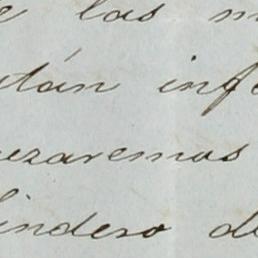 e las m
tán inf
ezaremos
lindero de